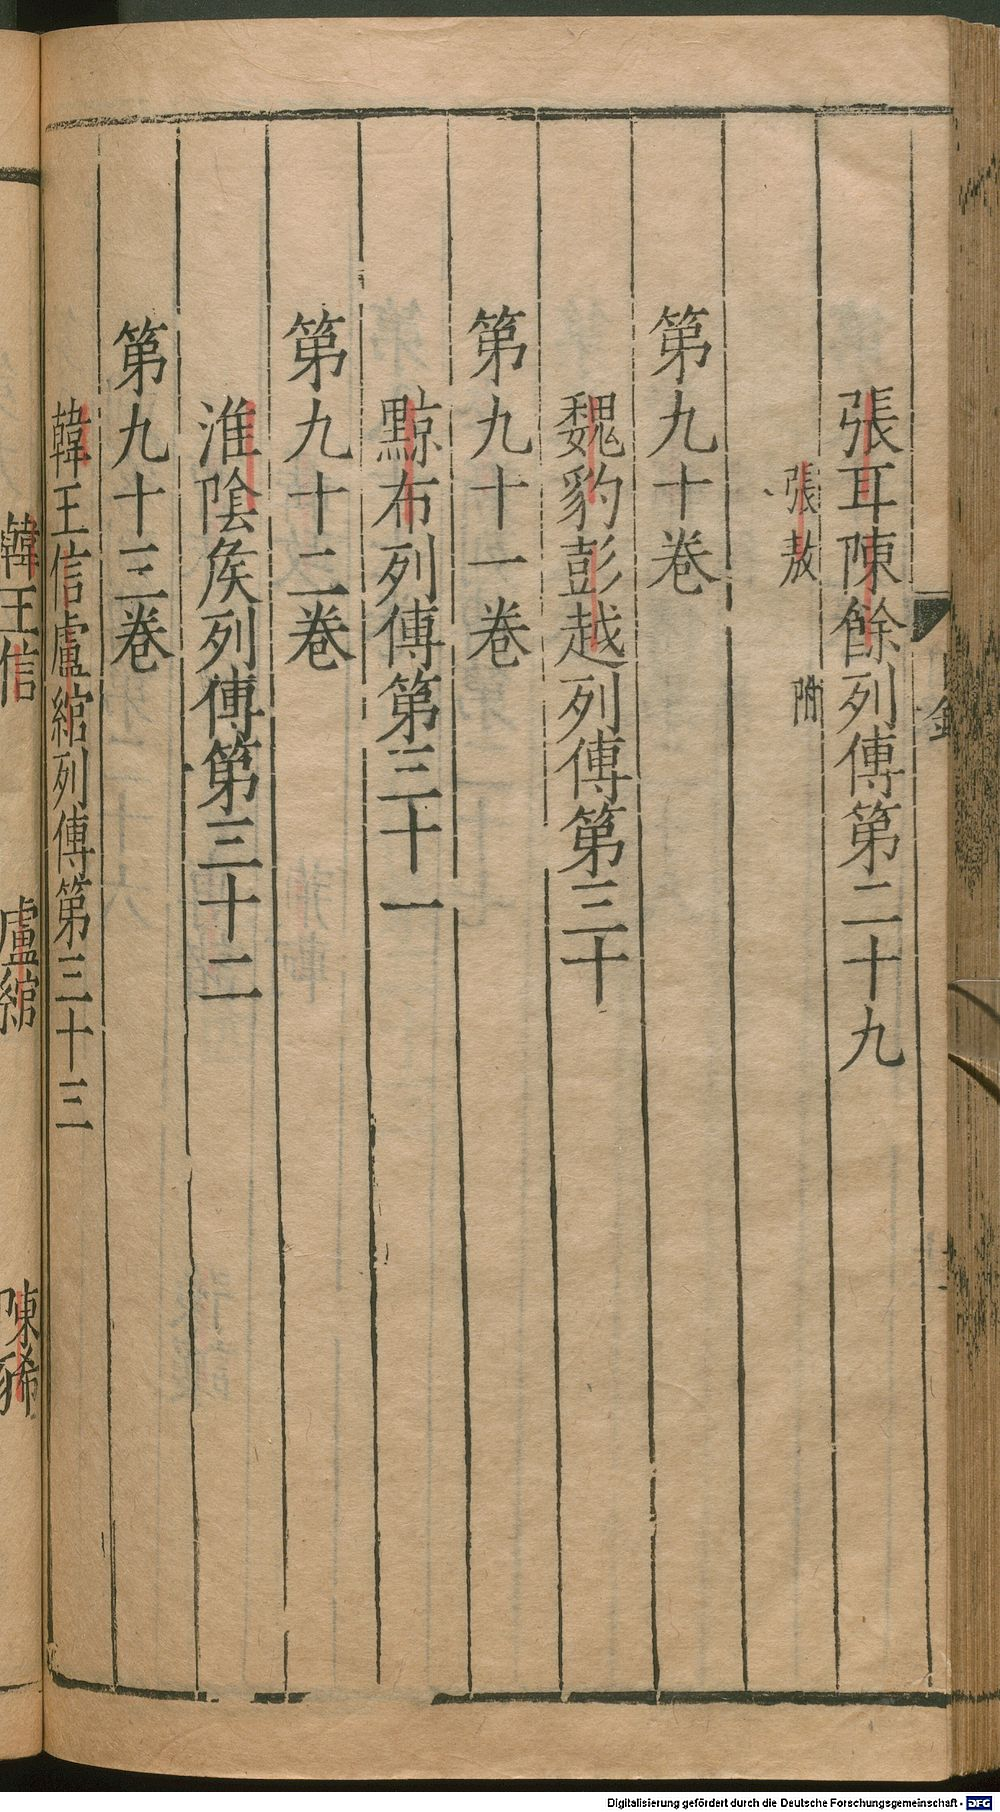 目錄
張耳陳餘列傳第二十九
張敖 附
第九十卷
魏豹彭越列傳第三十
第九十一卷
黥布列傳第三十一
第九十二卷
淮陰矦列傳第三十二
第九十三卷
韓王信盧綰列傳第三十三
韓王信 盧綰 陳豨
Digitalisierung gefördert durch die Deutsche Forschungsgemeinschaft - DFG